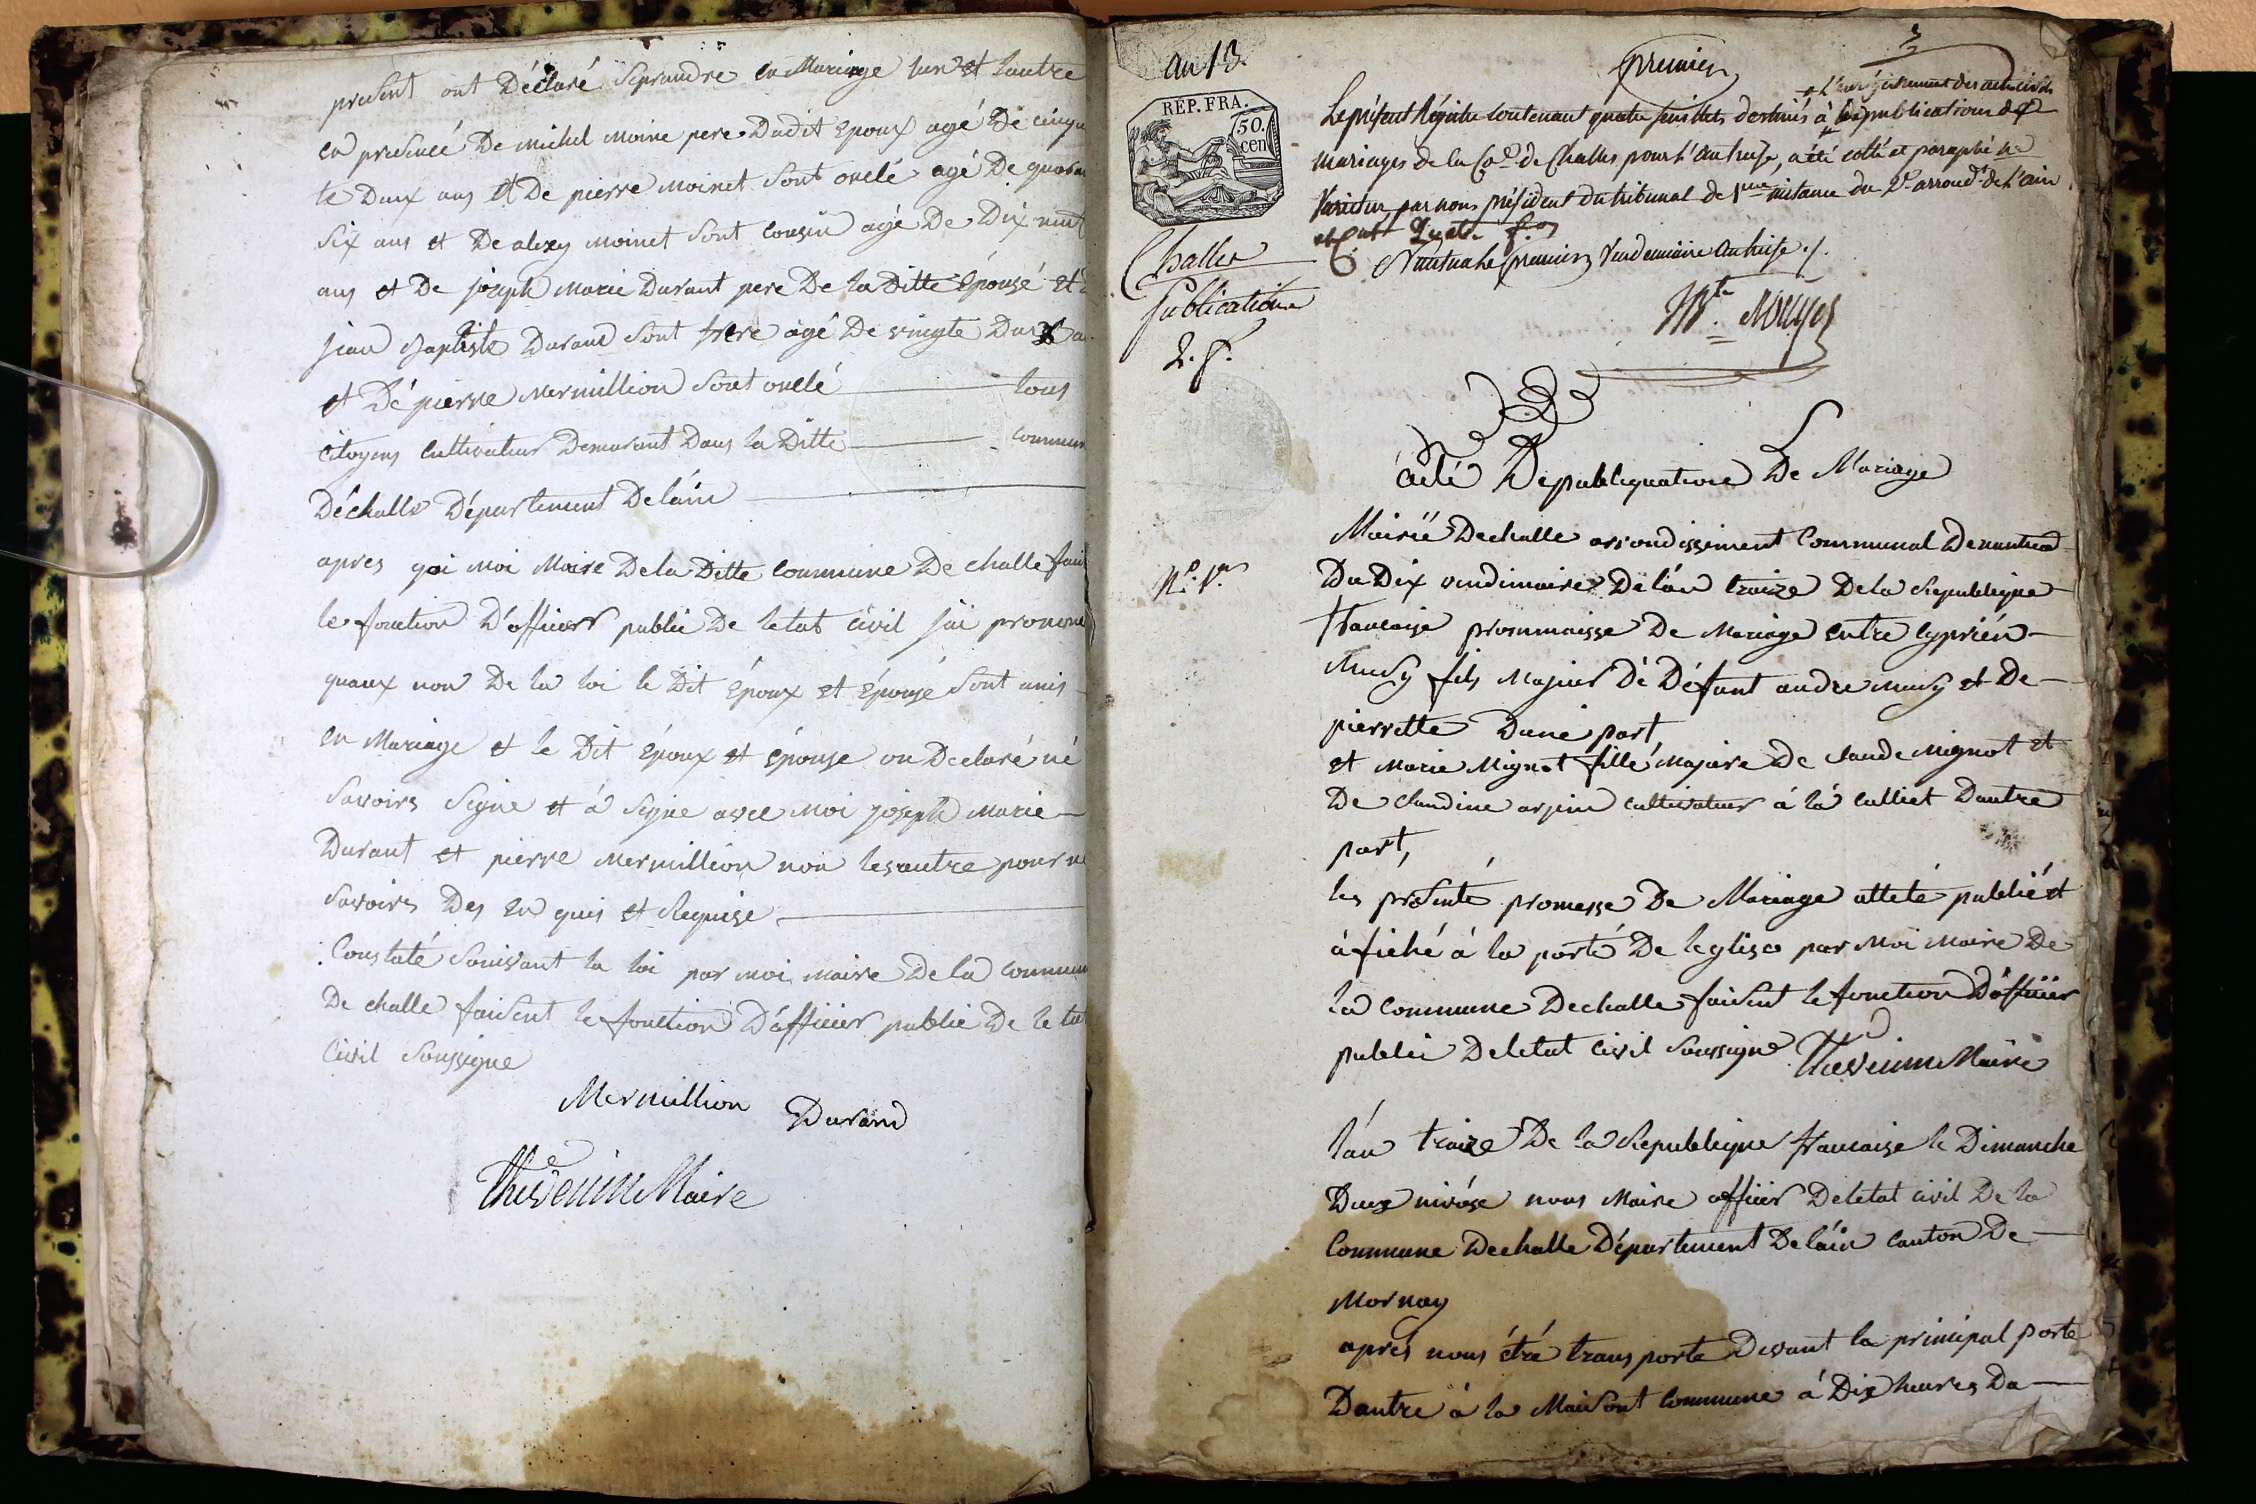 present ont Déclaré Seprandre en Mariage lun et lautre
en presencé De michel moine pere Dudit Epoux agé De cinqu
te Dux ans et De pierre moinet Sont onclé agé De quara
Six ans et De alexy moinet Sont cousin agé De Dix nuit
ans et De joseph marie Durant pere De la Ditte Épousé et
jean Baptiste Durand Sont frere agé De vingte Dux a
et Dé pierre mermillion Sont onclé tous
citoyens cultivateur Demurant Dans la Ditte commun
Déchalle Département Delain
apres qoi moi Maire Dela Ditte commune De challe fais
le fonction D'officier public De letat civil jai prononc
quaux non De la loi le Dit époux et épouse Sont unis
en Mariage et le Dit époux et épouse on Declaré né
Savoirs Signe et á Signe avec moi joseph marie
Durant et pierre mermillion non lesautre pour n
Savoirs Des en quis et Requise
Constaté Souisvant la loi par moi maire Dela commun
De challe faisent le fonction D'áfficier public De le tat
Civil Soussigne
Mermillion Durand
Thevenin Maire
an 13.
premier
l'enregistrement des actes civils
REP. FRA.
50.
cen
Le présent Régistre contenant quatre feuillets destinés à les publications de
mariages de la Cne de Challes pour l'an treize, a été cotté et paraphé ne
Varietur par nous président du tribunal de 1ere instance du 2e arrond.t de l'ain
Challes
Nantua le premier Vendemiaire an treise ./.
Publications
2. f.
acté De publiquations De Mariage
Mairië Dechalle arrondissiment Communal De nantua
N.o 1.er
Du Dix vendimaire De lán traize De la Republique
francaise prommaisse De mariage entre cyprién
Musy fils Majeur Dé Défunt andre musy et De
pierrette Dune part
et marie Mignot fillé Majeure De claude Mignot et
De claudine arpin cultivateur á lá culliet Dautre
part,
les présenté promesse De Mariage atteté publié et
áfiché á la porté De leglise par moi maire De
la commune Dechalle faisent le fonction D'áfficier
public De letat civil Soussigne Thevenin Maire
lán traize De la Republique francaise le Dimanche
Dux nivóse nous Maire officier De letat civil De la
Commune De challe Département De láin canton De
Mornay
apres nous étré transporte Devant la principal porte
Dantre á la Maisont commune á Dix heures Du